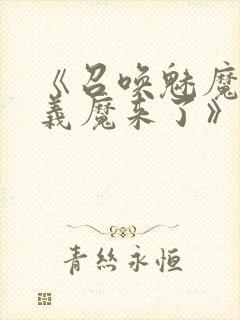 《召唤魅魔
義魔来了》
青絲永恒